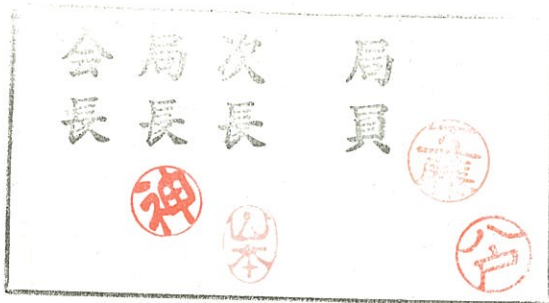 会長
局長
次長
局員
神
山本
八戸